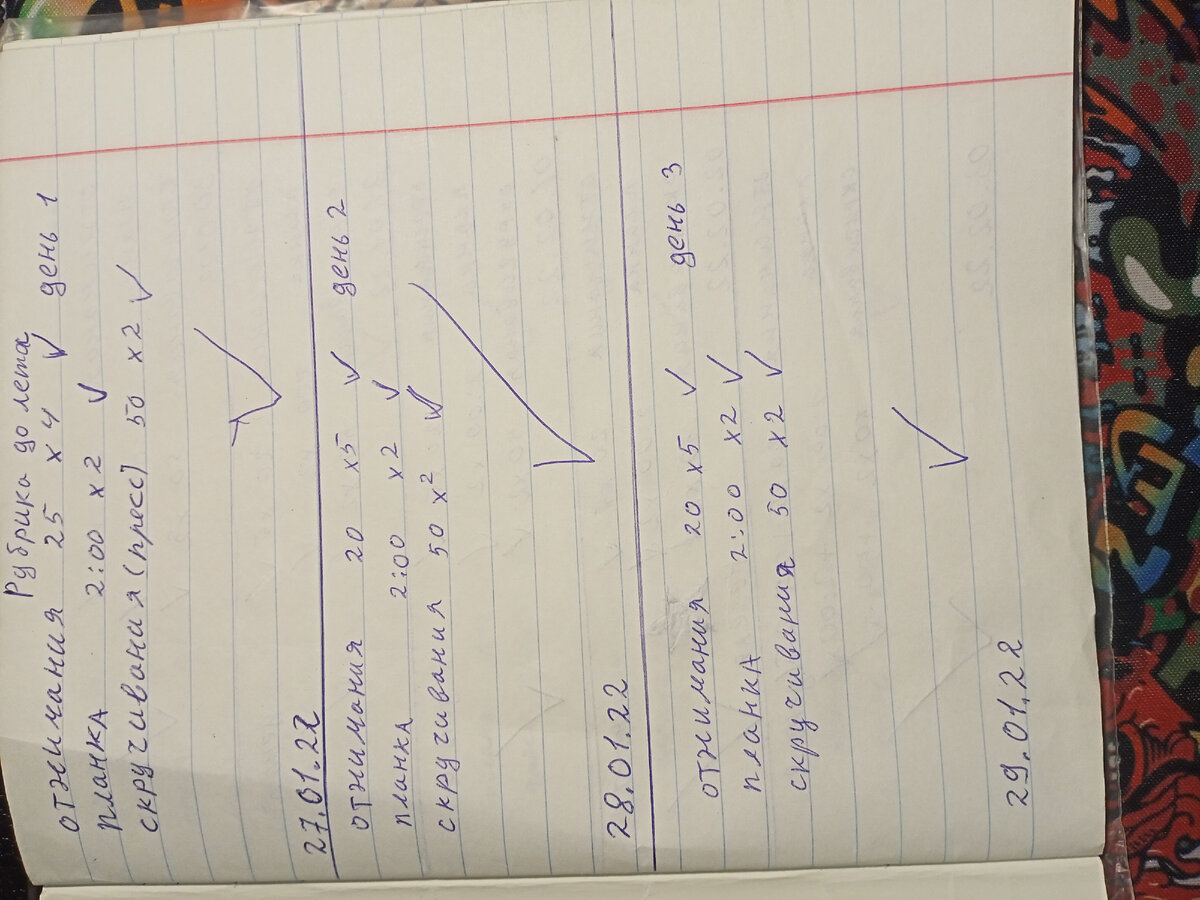 Рубрика до лета
отжимания 25 x 4 ✓ день 1
планка 2:00 x 2 ✓
скручивания (пресс) 50 x2 ✓
✓
27.01.22
отжимания 20 x5 ✓ день 2
планка 2:00 x2 ✓
скручивания 50 x2 ✓
✓
28.01.22
отжимания 20 x5 ✓ день 3
планка 2:00 x2 ✓
скручивания 50 x2 ✓
✓
29.01.22